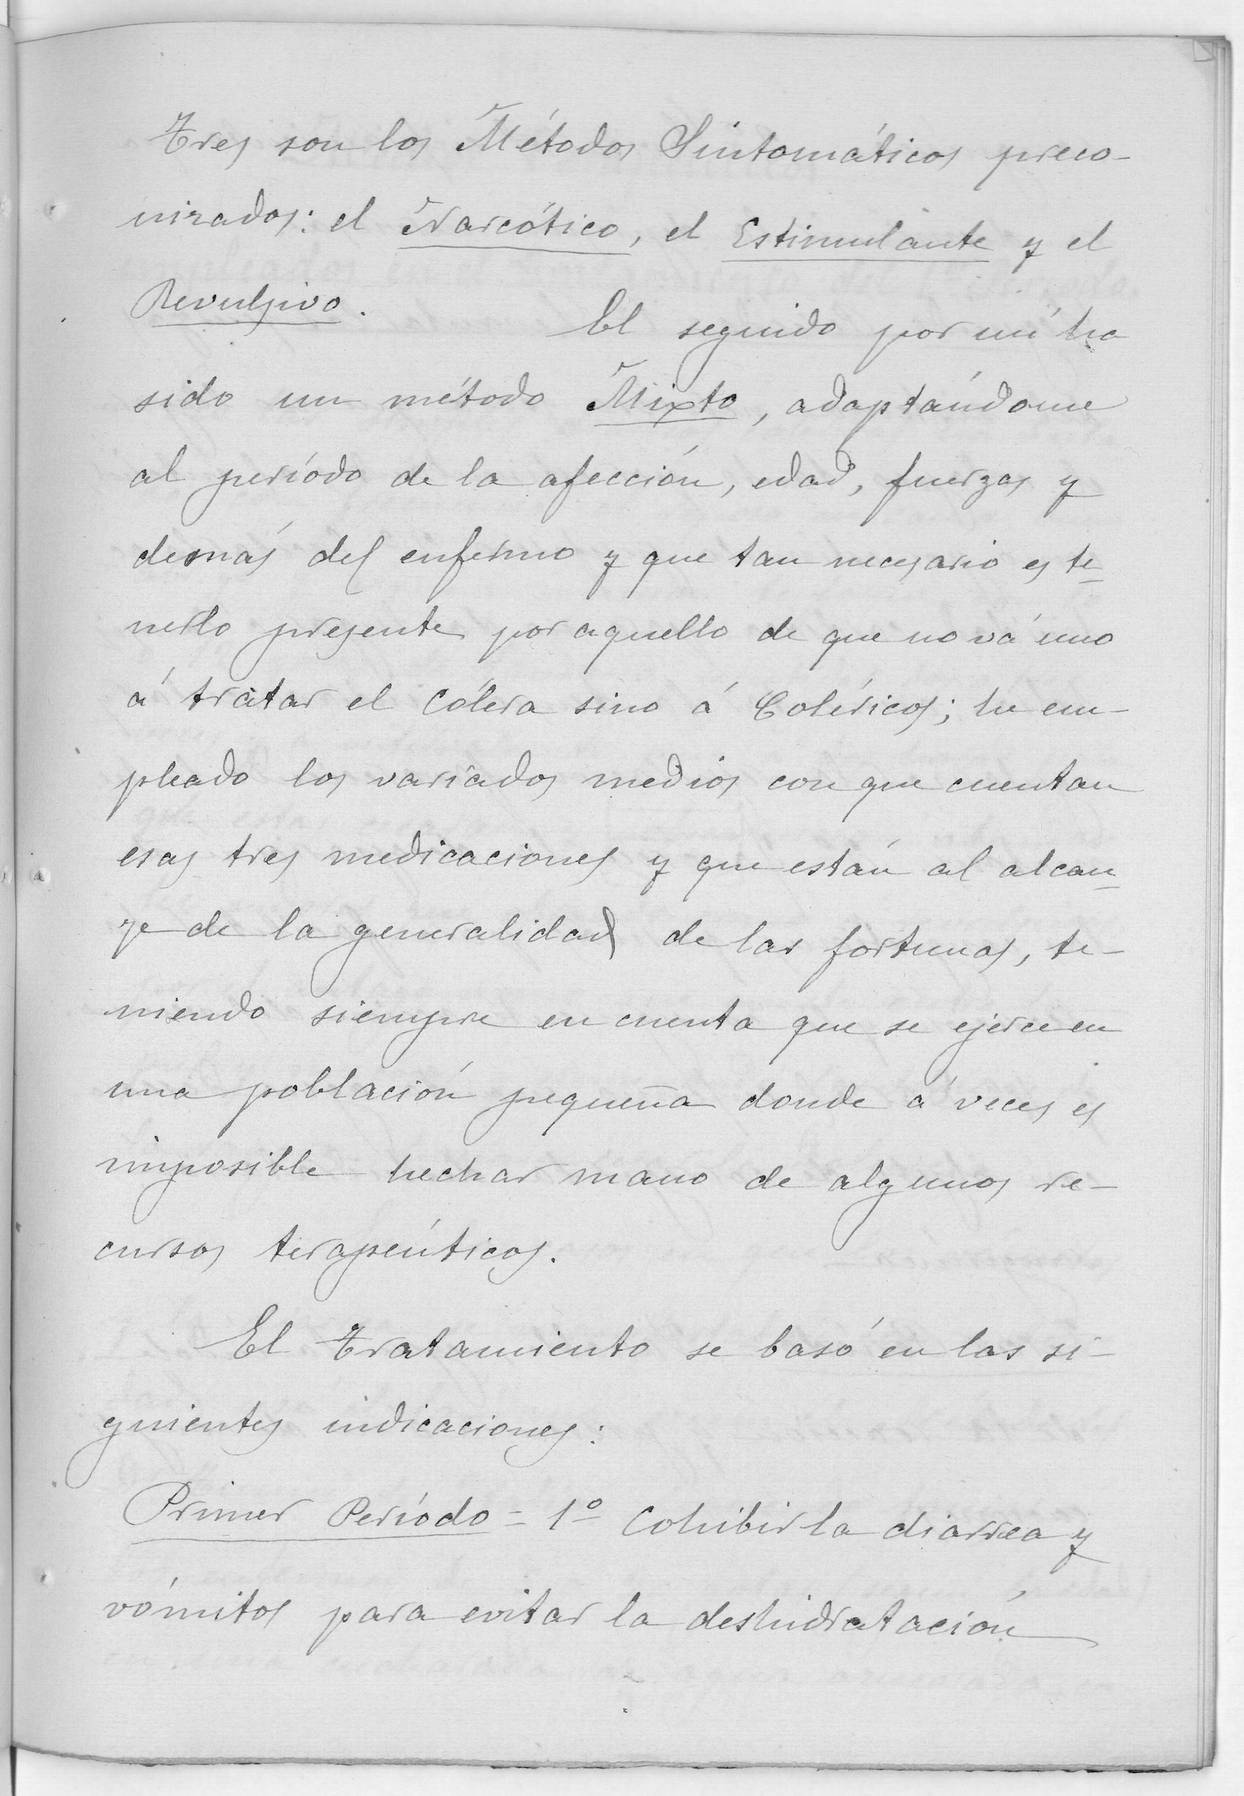 Tres son los Métodos Sintomáticos preco-
nizados: el Narcótico, el Estimulante y el
Revulsivo.
El seguido por mí ha
sido un método Mixto, adaptándome
al período de la afección, edad, fuerzas y
demás del enfermo y que tan necesario es te-
nerlo presente por aquello de que no vá uno
á tratar el Cólera sino á Coléricos; he em-
pleado los variados medios con que cuentan
esas tres medicaciones y que están al alcan-
ze de la generalidad de las fortunas, te-
niendo siempre en cuenta que se ejerce en
una población pequeña donde á veces es
imposible hechar mano de algunos re-
cursos terapéuticos.
El Tratamiento se basó en las si-
guientes indicaciones:
Primer Período = 1º Cohibir la diarrea y
vómitos para evitar la deshidratación